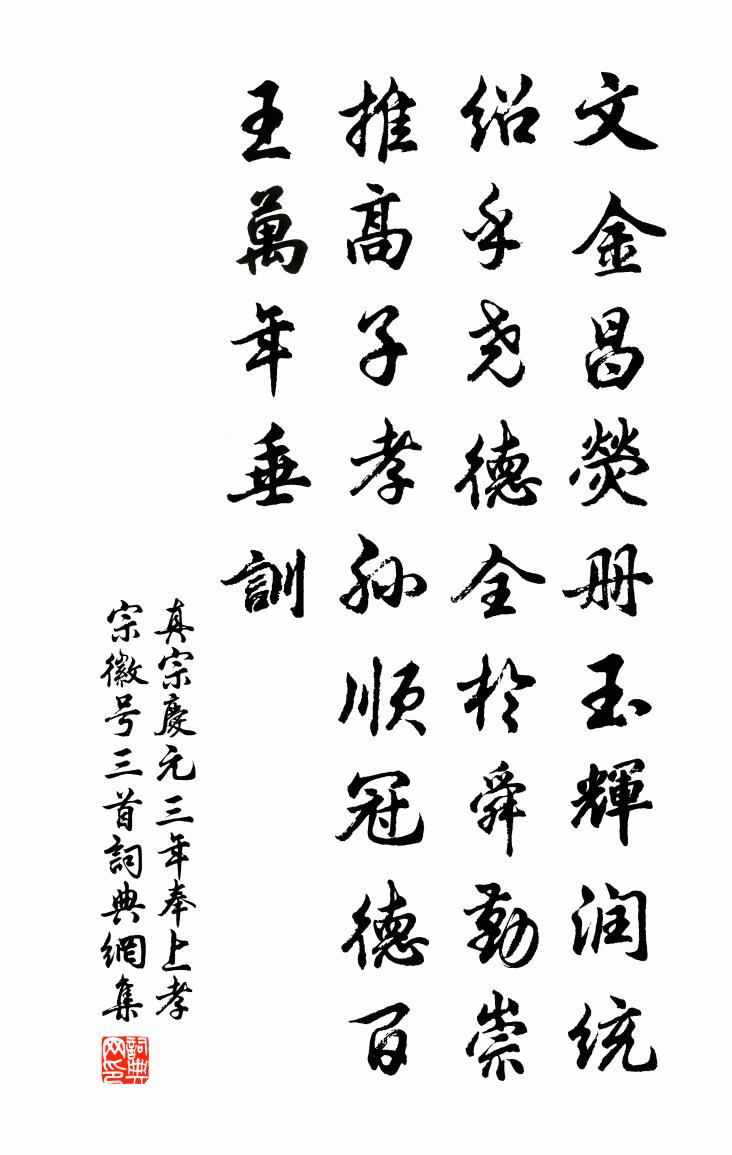 文金昌熒册玉輝润統
绍乎尧德全於舜勤崇
推高子孝孙顺冠德百
王萬年垂訓
真宗慶元三年奉上孝
宗徽号三首詞典網集
詞典网印